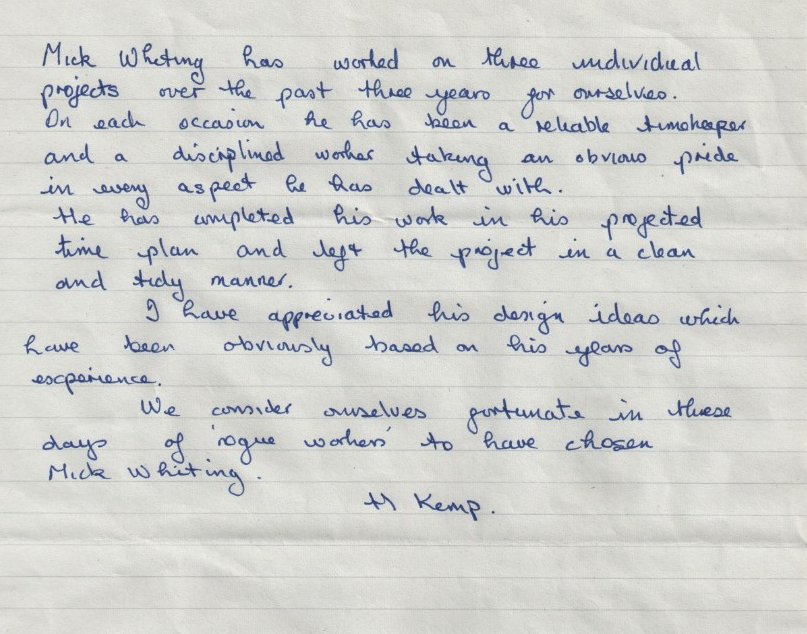 Mick Whiting has worked on three individual
projects over the past three years for ourselves.
On each occasion he has been a reliable timekeeper
and a disciplined worker taking an obvious pride
in every aspect he has dealt with.
He has completed his work in his projected
time plan and left the project in a clean
and tidy manner.
I have appreciated his design ideas which
have been obviously based on his years of
experience.
We consider ourselves fortunate in these
days of 'rogue workers' to have chosen
Mick Whiting.
Kemp.